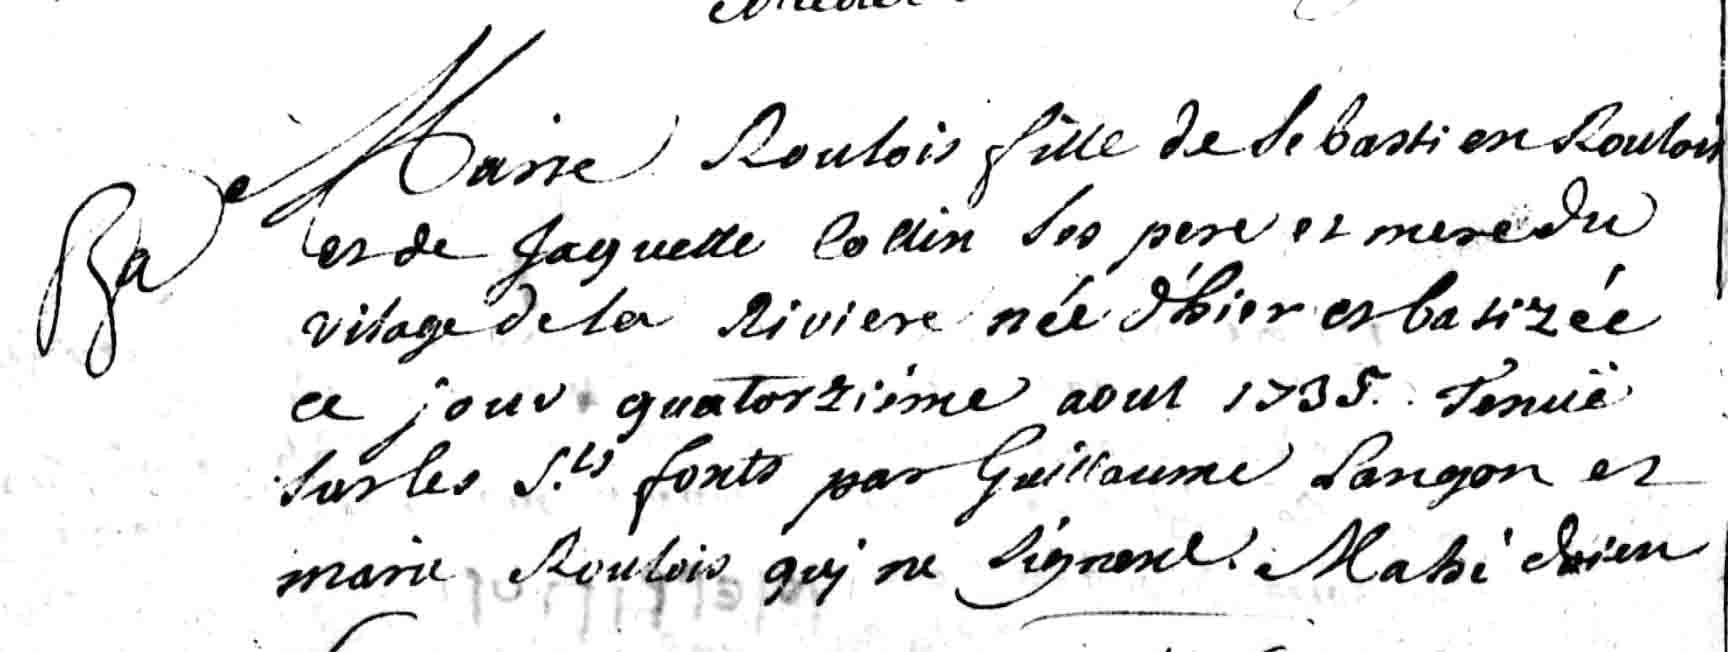 Ba
Marie Roulois fille de Sebastien Roulois
et de Jaquette Collin ses pere et mere du
vilage de la Riviere née d'hier et batizée
ce jour quatorziéme aout 1735. Tenuë
sur les S.ts fonts par Guillaume Langon et
marie Roulois qui ne signent. Mahé doien